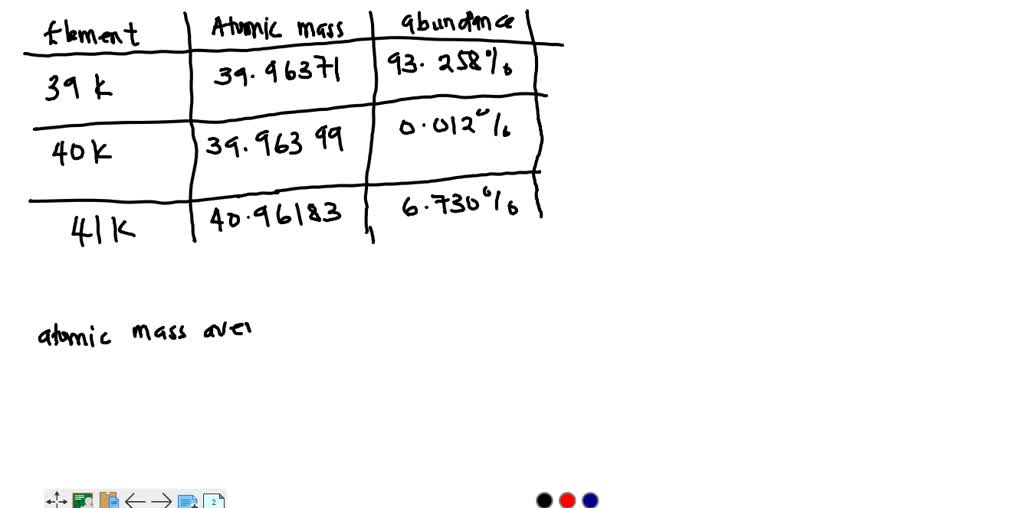 Element Atomic mass abundance
39 K 39.96371 93.258%
40K 39.96399 0.012%
41K 40.96183 6.730%
atomic mass aver
2